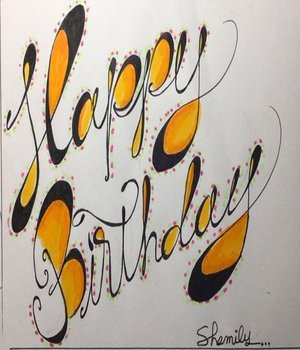 Happy
Birthday
Shemily...